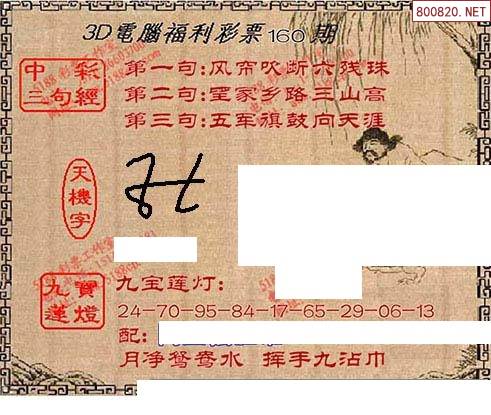 800820.NET
3D電腦福利彩票160期
中彩
三句經
第一句:风帘吹断六残珠
第二句:望家乡路三山高
第三句:五军旗鼓向天涯
天機字
九寶
蓮燈
九宝莲灯:
24-70-95-84-17-65-29-06-13
配:
月净鸳鸯水 挥手九沾巾